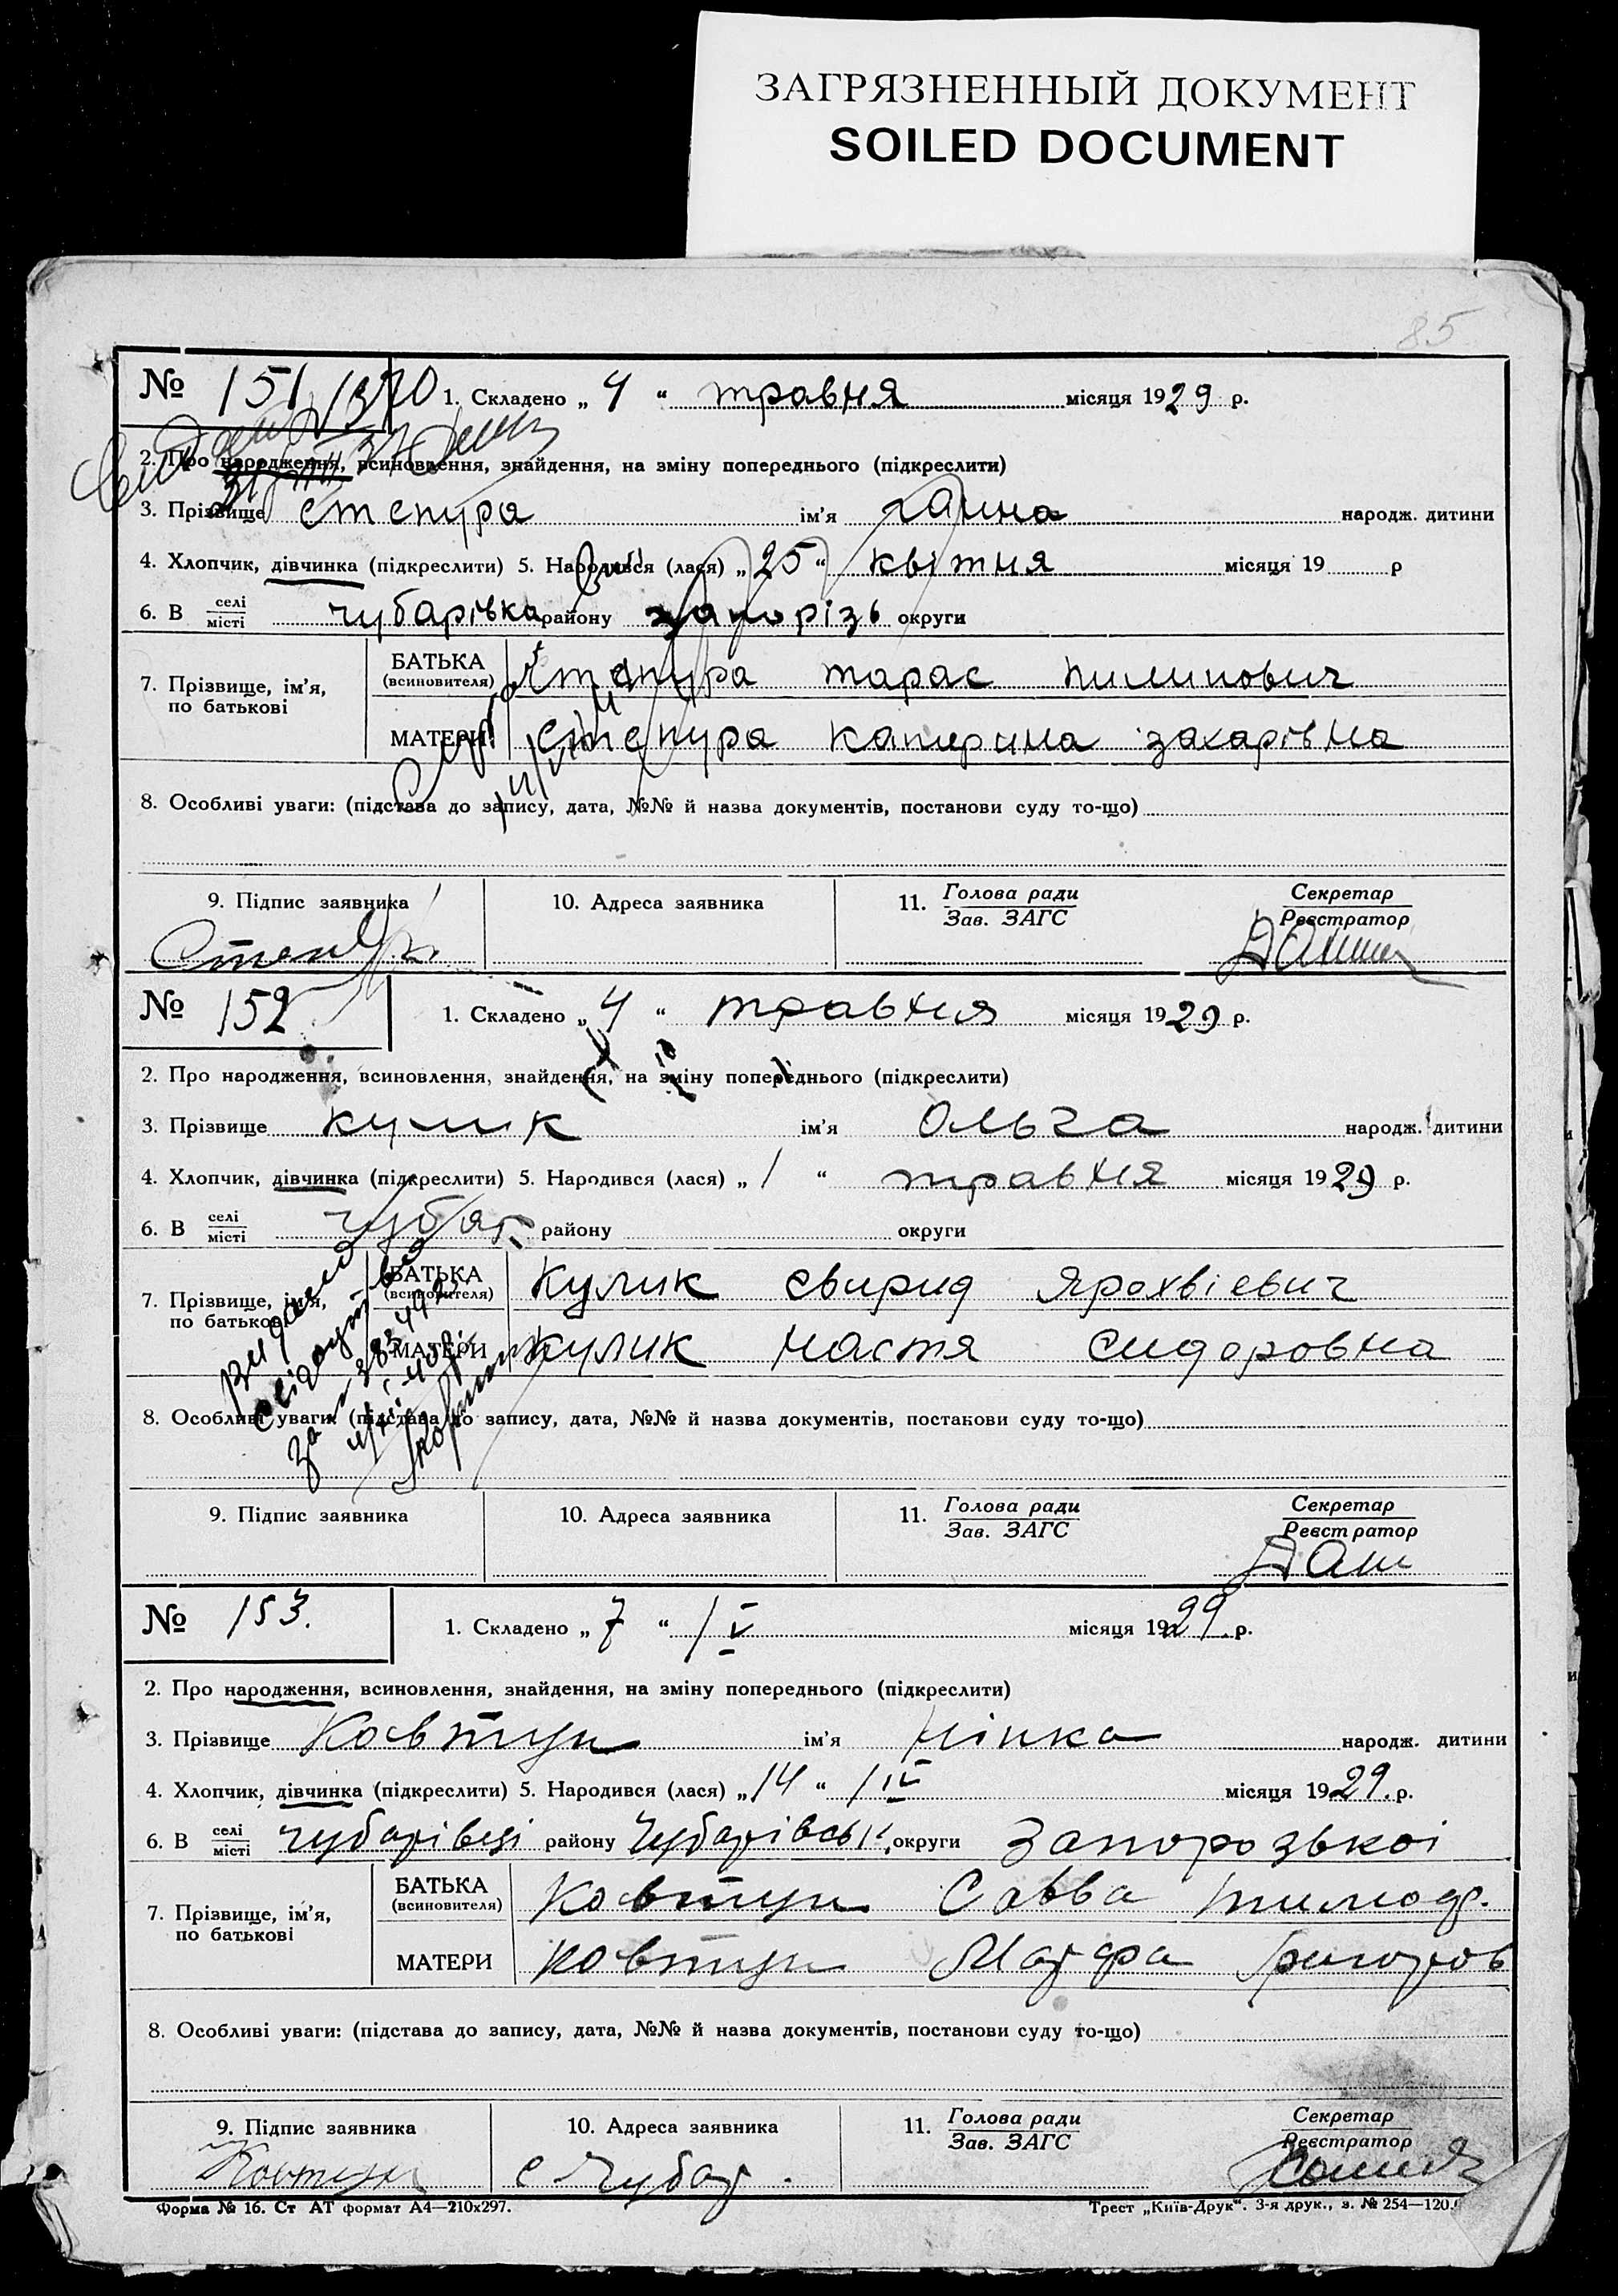 ЗАГРЯЗНЕННЫЙ ДОКУМЕНТ
SOILED DOCUMENT
85
№ 151 1. Складено „ 4 “ травня місяця 1929 р.
2. Про народження, всиновлення, знайдення, на зміну попереднього (підкреслити)
3. Прізвище Степура ім'я Ганна народж. дитини
4. Хлопчик, дівчинка (підкреслити) 5. Народився (лася) „ 25 “ квітня місяця 19 р
6. В селі/місті Чубарівка району Запорізь округи
7. Прізвище, ім'я, по батькові
БАТЬКА (всиновителя) Степура Тарас Пилипович
МАТЕРИ Степура Катерина Захарівна
8. Особливі уваги: (підстава до запису, дата, №№ й назва документів, постанови суду то-що)
9. Підпис заявника 10. Адреса заявника 11. Голова ради/Зав. ЗАГС Секретар/Реєстратор
Степура
№ 152 1. Складено „ 4 “ травня місяця 1929 р.
2. Про народження, всиновлення, знайдення, на зміну попереднього (підкреслити)
3. Прізвище Кулик ім'я Ольга народж. дитини
4. Хлопчик, дівчинка (підкреслити) 5. Народився (лася) „ 1 “ травня місяця 1929 р.
6. В селі/місті Чубар. району округи
7. Прізвище, ім'я, по батькові
БАТЬКА (всиновителя) Кулик Свирид Ярохвієвич
МАТЕРИ Кулик Настя Сидоровна
8. Особливі уваги: (підстава до запису, дата, №№ й назва документів, постанови суду то-що)
9. Підпис заявника 10. Адреса заявника 11. Голова ради/Зав. ЗАГС Секретар/Реєстратор
№ 153. 1. Складено „ 7 “ / V місяця 1929. р.
2. Про народження, всиновлення, знайдення, на зміну попереднього (підкреслити)
3. Прізвище Ковтун ім'я Нінка народж. дитини
4. Хлопчик, дівчинка (підкреслити) 5. Народився (лася) „ 14 “ / IV місяця 1929. р.
6. В селі/місті Чубарівці району Чубарівськ. округи Запорозької
7. Прізвище, ім'я, по батькові
БАТЬКА (всиновителя) Ковтун Савва Тимоф.
МАТЕРИ Ковтун Марфа Григоров
8. Особливі уваги: (підстава до запису, дата, №№ й назва документів, постанови суду то-що)
9. Підпис заявника 10. Адреса заявника 11. Голова ради/Зав. ЗАГС Секретар/Реєстратор
Ковтун с Чубар.
Форма № 16. Ст АТ формат А4—210x297. Трест „Київ-Друк“. 3-я друк., з. № 254—120.